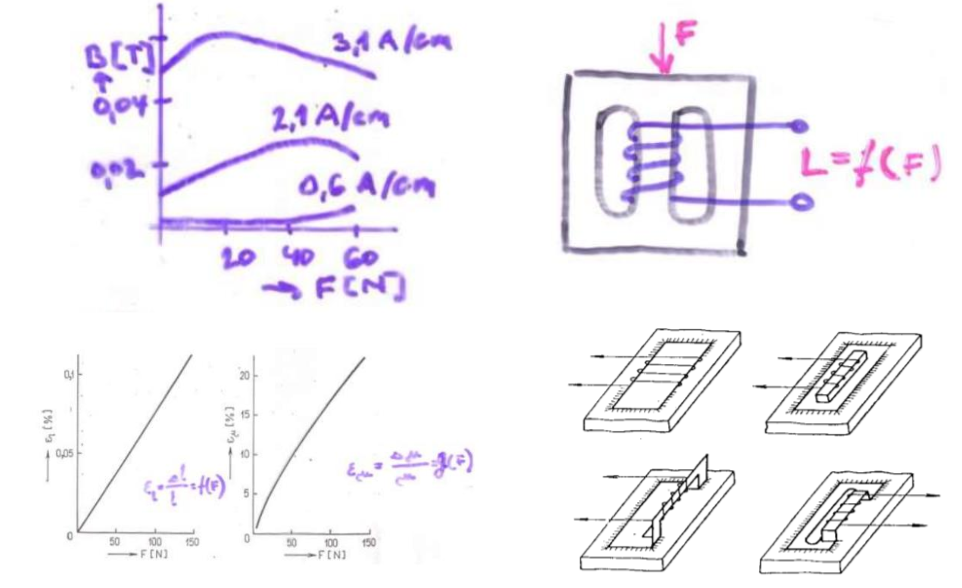 B[T]
0,04
0,02
3,1 A/cm
2,1 A/cm
0,6 A/cm
20 40 60
→ F[N]
F
L=f(F)
0,1
0,05
0
50 100 150
→ F[N]
→ ε₁ [%]
ε₁ = Δl/l = f(F)
20
15
10
5
0
50 100 150
→ F[N]
→ εμ [%]
εμ = Δμ/μ = g(F)